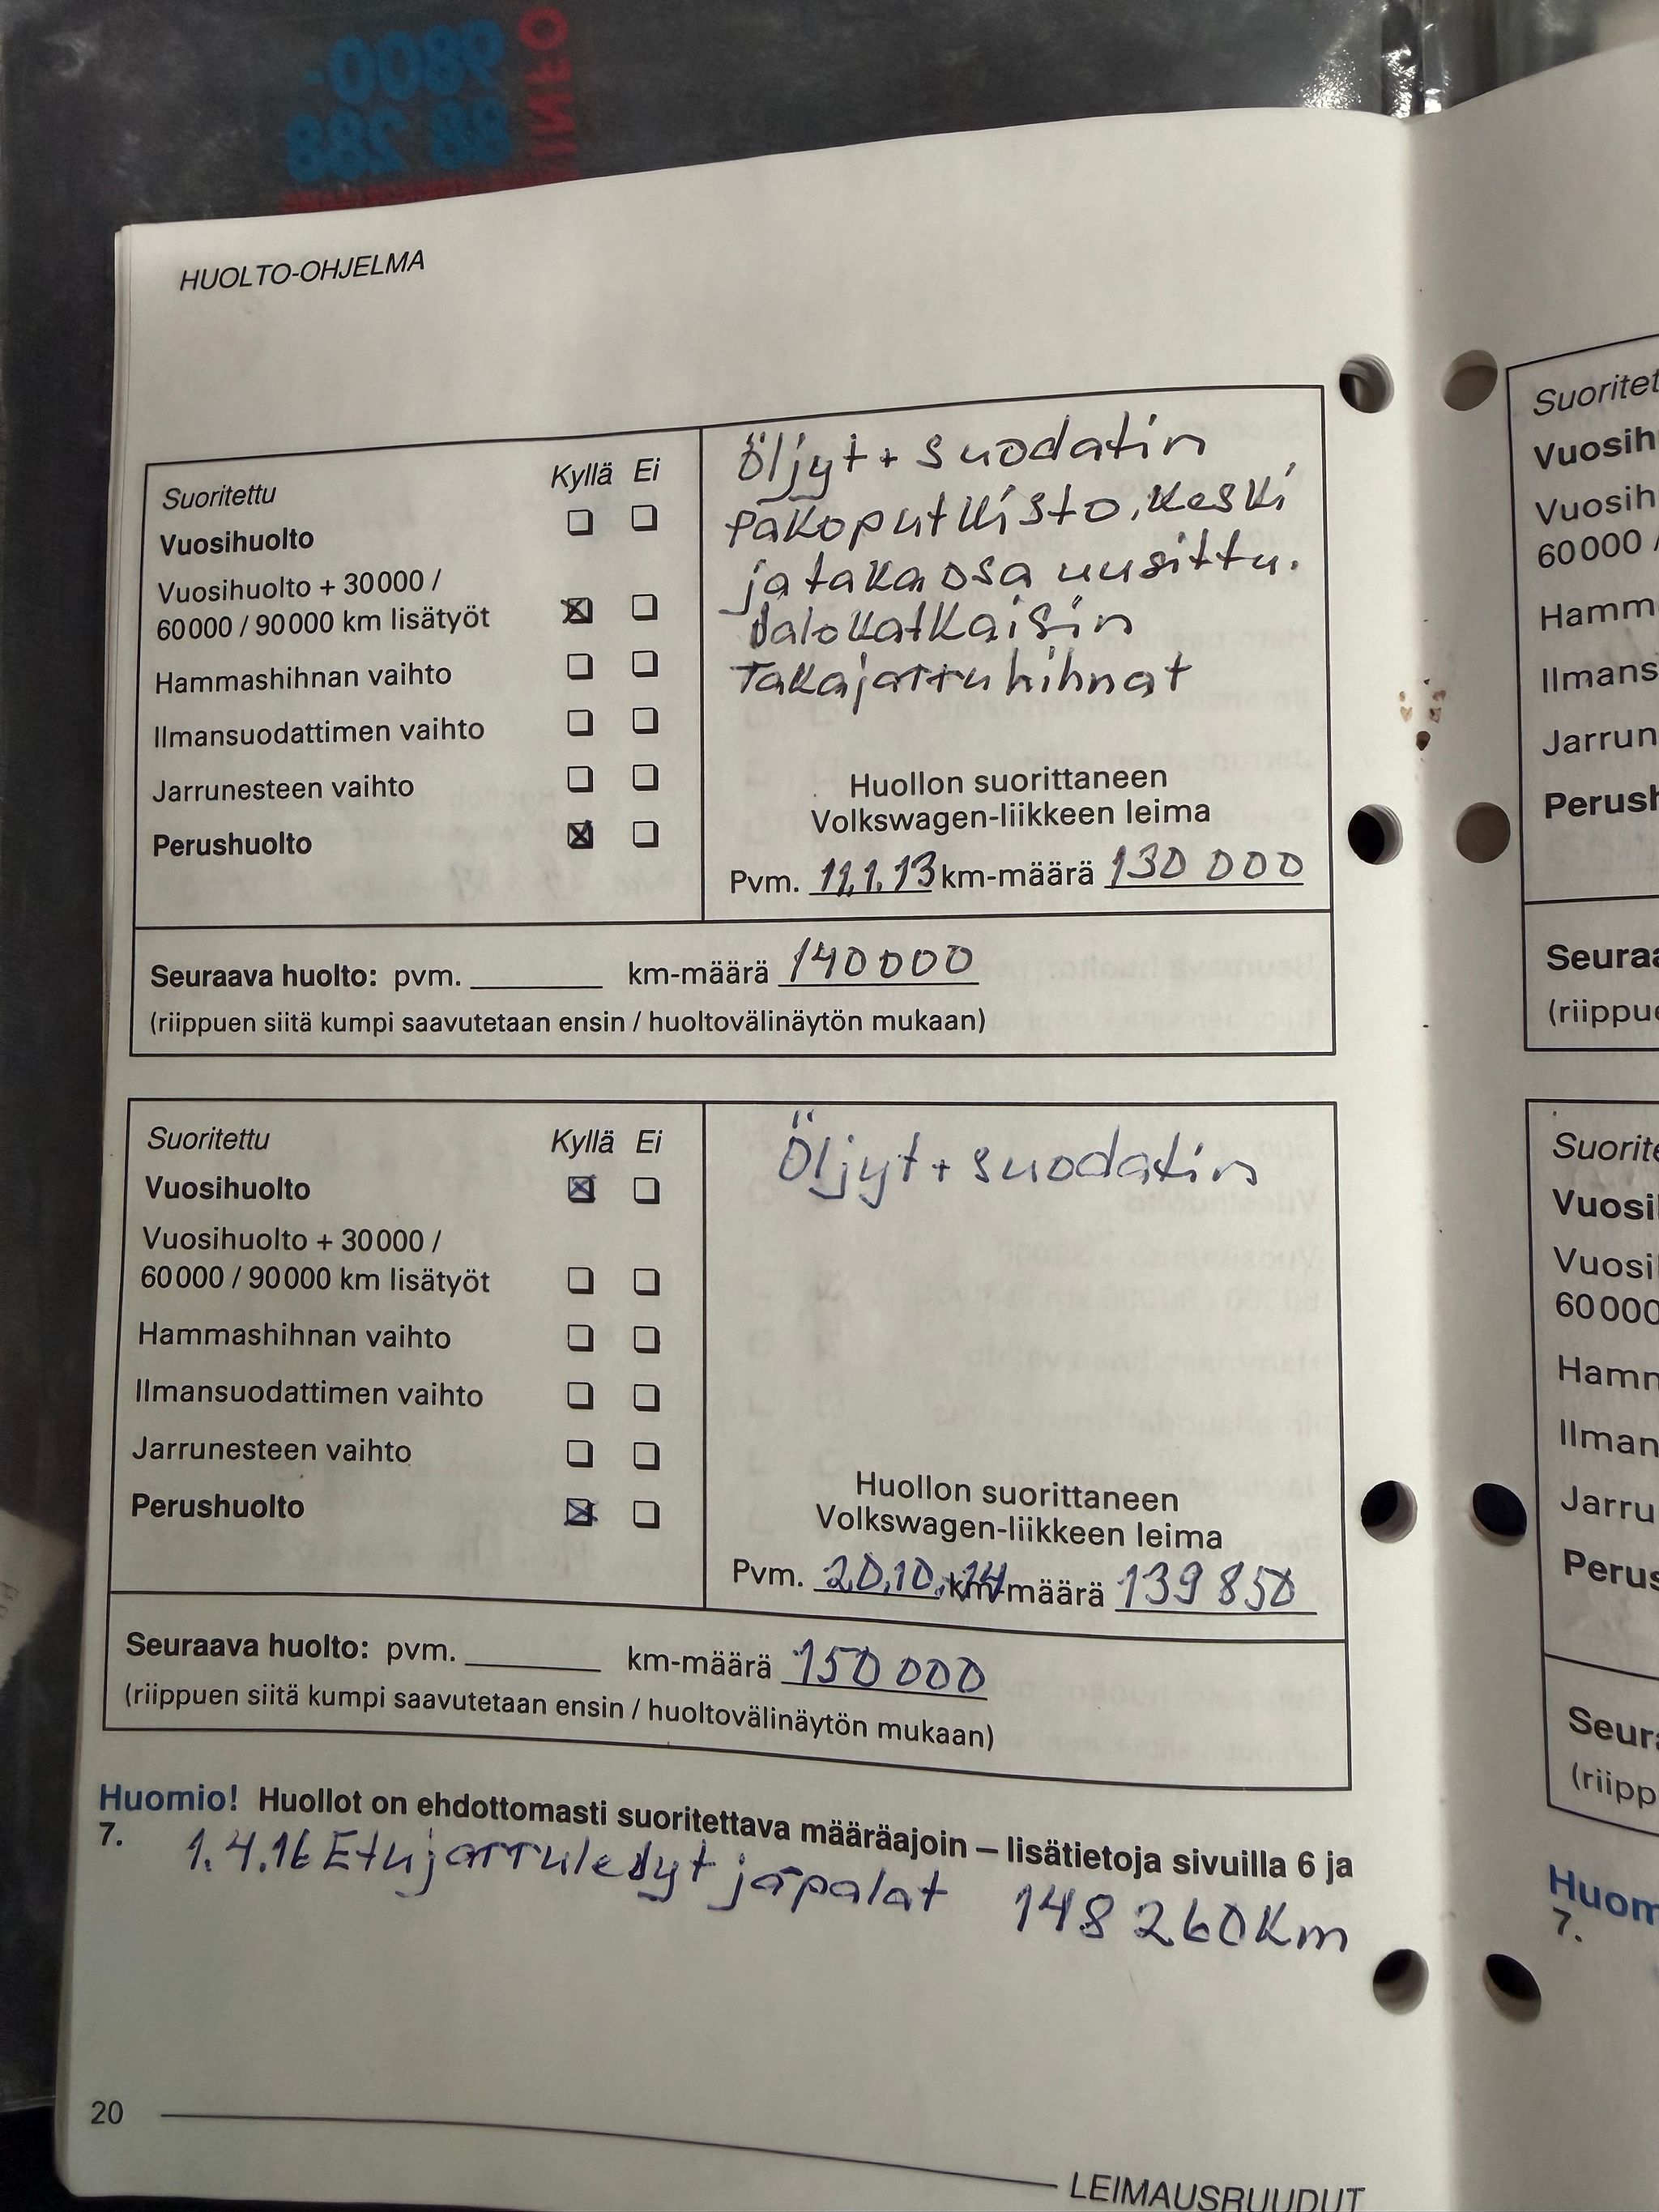 0800-
88 288
INFO
HUOLTO-OHJELMA
Suoritettu Kyllä Ei
Vuosihuolto
Vuosihuolto + 30000 /
60000 / 90000 km lisätyöt
Hammashihnan vaihto
Ilmansuodattimen vaihto
Jarrunesteen vaihto
Perushuolto
Öljyt + suodatin
pakoputkisto, keski
ja takaosa uusittu.
Valokatkaisin
Takajarruhihnat
Huollon suorittaneen
Volkswagen-liikkeen leima
Pvm. 11.1.13 km-määrä 130 000
Seuraava huolto: pvm. km-määrä 140000
(riippuen siitä kumpi saavutetaan ensin / huoltovälinäytön mukaan)
Suoritettu Kyllä Ei
Vuosihuolto
Vuosihuolto + 30000 /
60000 / 90000 km lisätyöt
Hammashihnan vaihto
Ilmansuodattimen vaihto
Jarrunesteen vaihto
Perushuolto
Öljyt + suodatin
Huollon suorittaneen
Volkswagen-liikkeen leima
Pvm. 20.10.14 km-määrä 139 850
Seuraava huolto: pvm. km-määrä 150 000
(riippuen siitä kumpi saavutetaan ensin / huoltovälinäytön mukaan)
Huomio! Huollot on ehdottomasti suoritettava määräajoin – lisätietoja sivuilla 6 ja
7.
1.4.16 Etujarrulevyt ja palat 148 260 Km
20
LEIMAUSRUUDUT
Suoritet
Vuosih
Vuosih
60000 /
Hamm
Ilmans
Jarrun
Perush
Seuraa
(riippue
Suorite
Vuosi
Vuosi
60000
Hamm
Ilman
Jarru
Perus
Seura
(riipp
Huom
7.